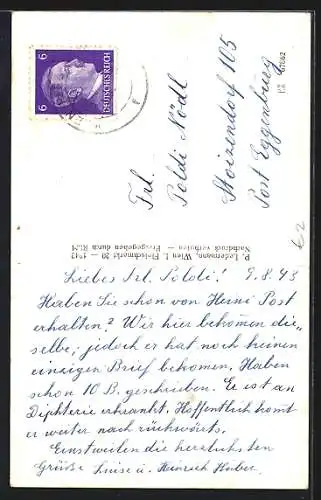 6 DEUTSCHES REICH 6
Frl.
Poldi Nödl
Stoizendorf 105
Post Eggenburg
P. Ledermann, Wien I, Fleischmarkt 20 — 1942
Nachdruck verboten — Freigegeben durch RLM
Liebes Frl. Poldi! 9.8.43
Haben Sie schon von Heini Post
erhalten? Wir hier bekommen die„
selbe; jedoch er hat noch keinen
einzigen Brief bekommen. Haben
schon 10 B. geschrieben. Er ist an
Diphterie erkrankt. Hoffentlich komt
er weiter nach rückwärts.
Einstweilen die herzlichsten
Grüße Luise u. Heinrich Huber.